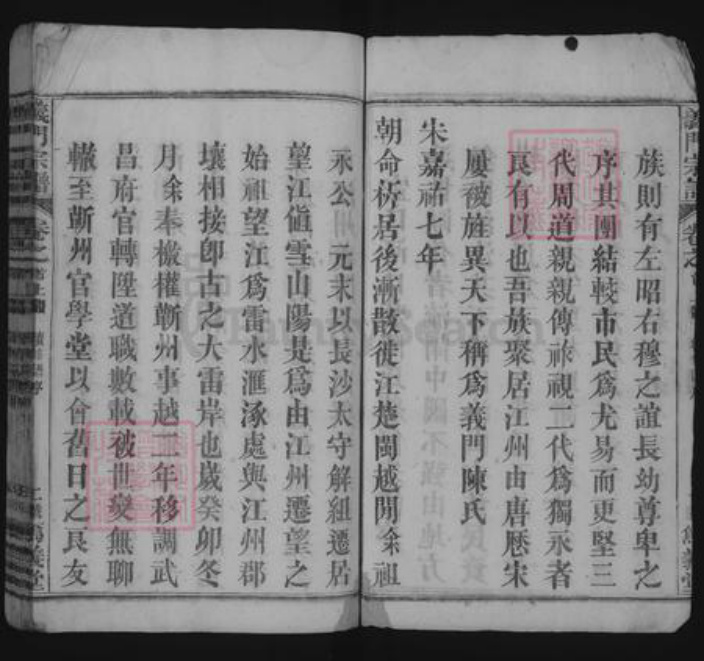 族則有左昭右穆之誼長幼尊卑之
序其團結較市民爲尤易而更堅三
代周道親親傳祚視二代爲獨永者
良有以也吾族聚居江州由唐歷宋
屢被旌異天下稱爲義門陳氏
宋嘉祐七年
朝命析居後漸散徙江楚閩越閒余祖
永公 元末以長沙太守解組遷居
望江値雪山陽是爲由江州遷望之
始祖望江爲雷水滙涿處與江州郡
壤相接卽古之大雷岸也歲癸卯冬
月余奉檄權蘄州事越二年移調武
昌府官轉陞道職數載被世變無聊
轍至蘄州官學堂以會舊日之良友
義門宗譜 卷之首上
義門宗譜 卷之
義堂